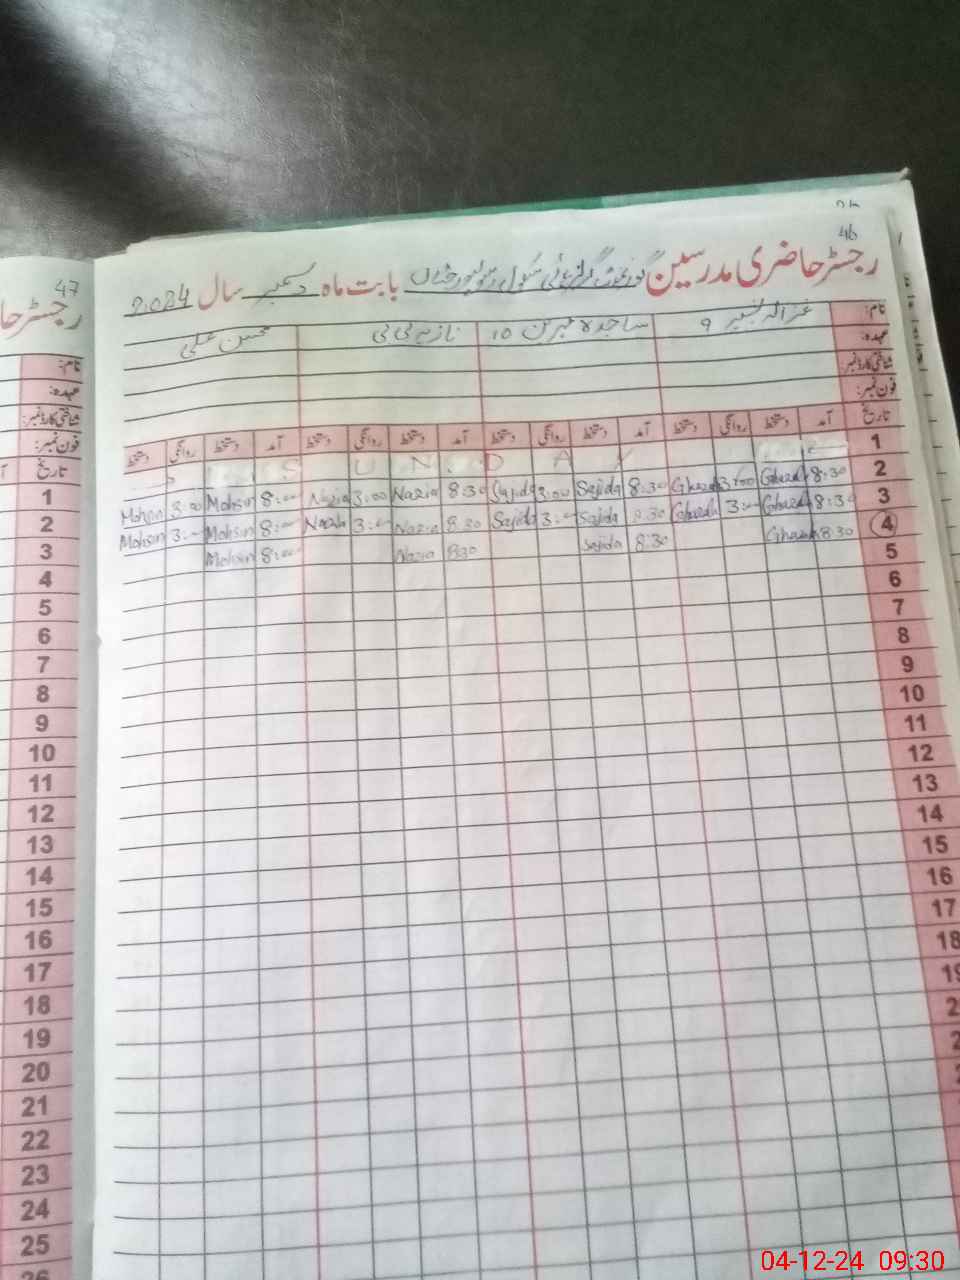 46
رجسٹر حاضری مدرسین گورنمنٹ گرلز ہائی سکول رسولپور بابت ماہ دسمبر سال 2024
نام: غزالہ 9 ساجدہ 10 نازیہ پی ٹی محسن علی
عہدہ:
شناختی کارڈ نمبر:
فون نمبر:
تاریخ آمد دستخط روانگی دستخط آمد دستخط روانگی دستخط آمد دستخط روانگی دستخط آمد دستخط روانگی دستخط
1 S U N D A Y
2 8:30 Ghazala 3:00 Ghazala 8:30 Sajida 3:00 Sajida 8:30 Nazia 3:00 Nazia 8:00 Mohsin 3:00 Mohsin
3 8:30 Ghazala 3:00 Ghazala 8:30 Sajida 3:00 Sajida 8:30 Nazia 3:00 Nazia 8:00 Mohsin 3:00 Mohsin
4 8:30 Ghazala 8:30 Sajida 8:30 Nazia 8:00 Mohsin
5
6
7
8
9
10
11
12
13
14
15
16
17
18
47
رجسٹر حا
نام:
عہدہ:
شناختی کارڈ نمبر:
فون نمبر:
تاریخ
1
2
3
4
5
6
7
8
9
10
11
12
13
14
15
16
17
18
19
20
21
22
23
24
25
26
04-12-24 09:30